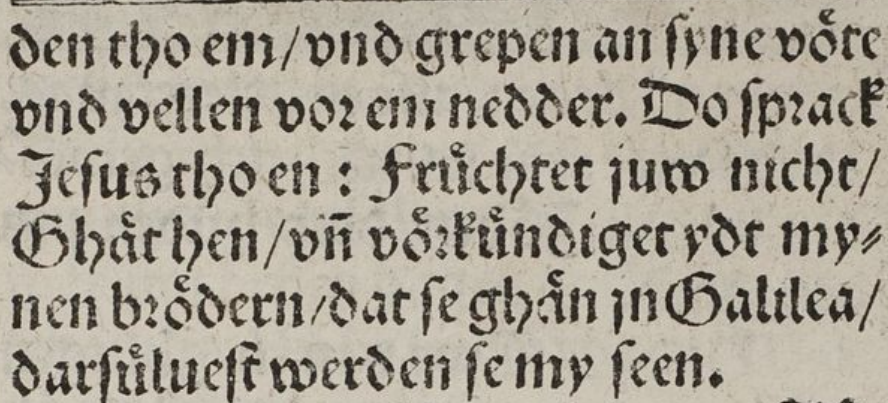 den tho em/vnd grepen an ſyne voͤte
vnd vellen vor em nedder. Do ſprack
Jeſus tho en: Fruͤchtet juw nicht/
Ghaͤt hen/vn̄ voͤrkuͤndiget ydt my⸗
nen broͤdern/dat ſe ghaͤn jn Galilea/
darſuͤlueſt werden ſe my ſeen.